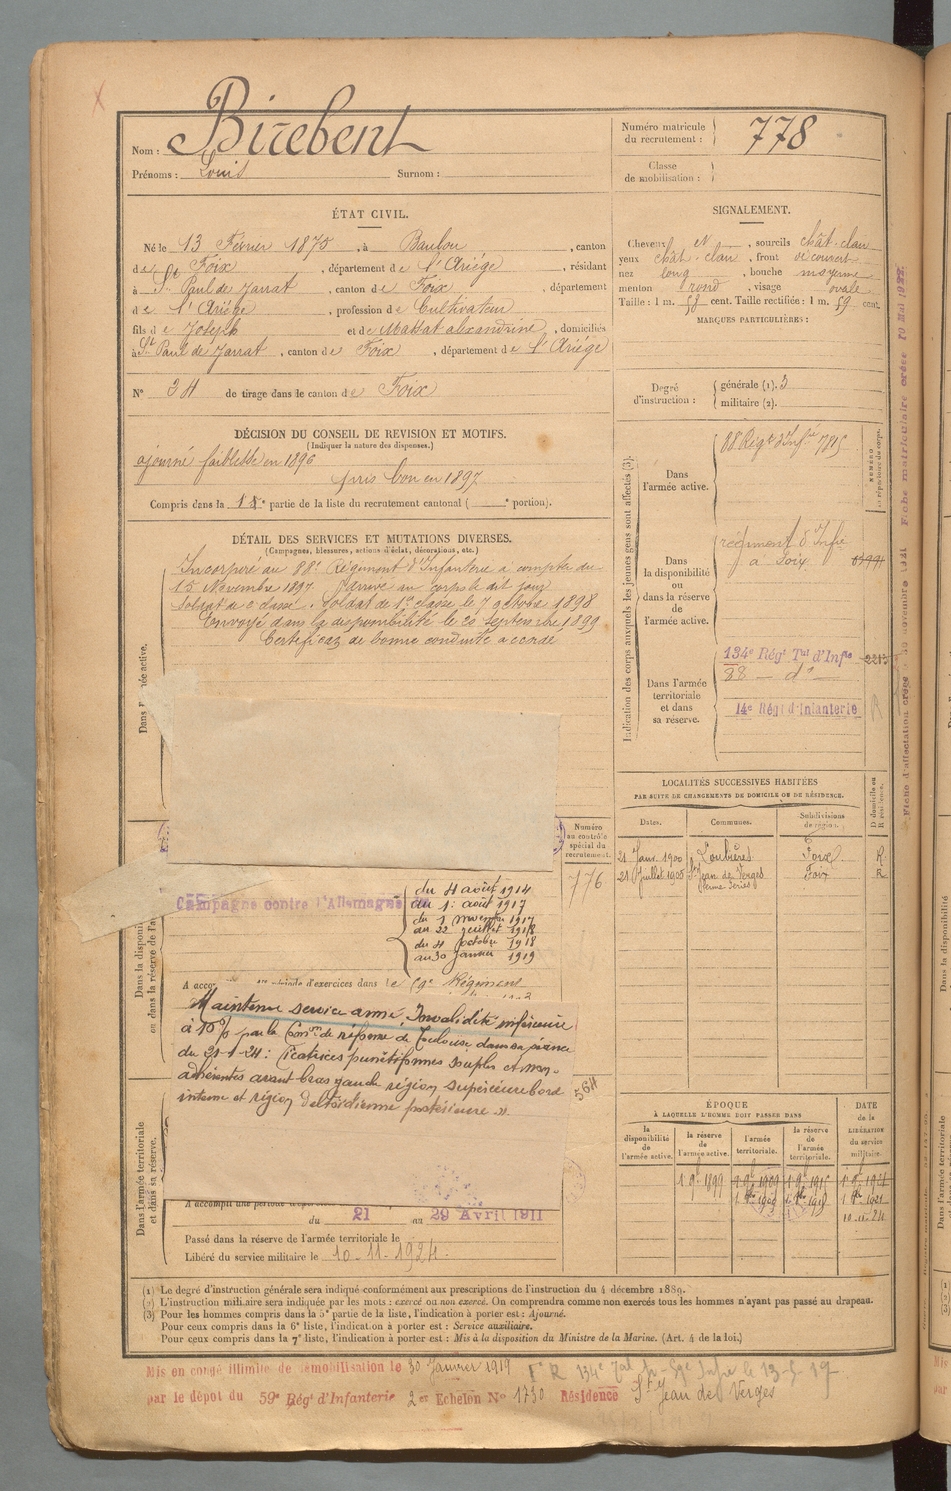 Nom : Birebent
Prénoms : Louis Surnom :
Numéro matricule du recrutement : 778
Classe de mobilisation :
ÉTAT CIVIL.
Né le 13 Février 1875, à Baulou, canton
de Foix, département de l'Ariége, résidant
à St Paul de Jarrat, canton de Foix, département
de l'Ariége, profession de Cultivateur
fils de Joseph et de Massat alexandrine, domiciliés
à St Paul de Jarrat, canton de Foix, département de l'Ariége
N° 34 de tirage dans le canton de Foix
SIGNALEMENT.
Cheveux et, sourcils chât-clair
yeux chât-clair, front découvert
nez long, bouche moyenne
menton rond, visage ovale
Taille : 1 m. 58 cent. Taille rectifiée : 1 m. 59 cent.
MARQUES PARTICULIÈRES :
Degré d'instruction : générale (1). 3
militaire (2).
DÉCISION DU CONSEIL DE REVISION ET MOTIFS.
(Indiquer la nature des dispenses.)
ajourné faiblesse en 1896
pris bon en 1897
Compris dans la 1e partie de la liste du recrutement cantonal ( e portion).
DÉTAIL DES SERVICES ET MUTATIONS DIVERSES.
(Campagnes, blessures, actions d'éclat, décorations, etc.)
Incorporé au 88e Régiment d'Infanterie à compter du
15 Novembre 1897 Arrivé au corps le dit jour
Soldat de 2e classe. Soldat de 1re classe le 7 octobre 1898
Envoyé dans la disponibilité le 20 septembre 1899
Certificat de bonne conduite accordé
Indication des corps auxquels les jeunes gens sont affectés (3).
Dans l'armée active.
88 Régt d'Infie
NUMÉRO
Dans la disponibilité ou dans la réserve de l'armée active.
régiment d'Infie
à Foix
Dans l'armée territoriale et dans sa réserve.
134e Régt Tal d'Infie
88 — do —
14e Régt d'Infanterie
LOCALITÉS SUCCESSIVES HABITÉES
PAR SUITE DE CHANGEMENTS DE DOMICILE OU DE RÉSIDENCE.
Dates. Communes. Subdivisions de région. D domicile ou R résidence.
21 Janv. 1900 Loubières Foix R
21 Juillet 1905 St Jean de Verges Foix R
Numéro au contrôle spécial du recrutement.
776
Campagne contre l'Allemagne
du 4 août 1914
au 1er août 1917
du 1 novembre 1917
au 22 juillet 1918
du 4 octobre 1918
au 30 janvier 1919
d'exercices dans le Régiment
Maintenu service armé Invalidité inférieure
à 10% par la Comon de réforme de Toulouse dans sa séance
du 21-1-24 : Cicatrices punctiformes souples et non
adhérentes avant bras gauche région supérieure bord
interne et région deltoïdienne postérieure »
564
A accompli une période
du 21 au 29 Avril 1911
Passé dans la réserve de l'armée territoriale le
Libéré du service militaire le 10-11-1924
Dans l'armée territoriale et dans sa réserve.
ÉPOQUE
À LAQUELLE L'HOMME DOIT PASSER DANS
la disponibilité de l'armée active. la réserve de l'armée active. l'armée territoriale. la réserve de l'armée territoriale. DATE de la LIBÉRATION du service militaire.
10-11-24
(1) Le degré d'instruction générale sera indiqué conformément aux prescriptions de l'instruction du 4 décembre 1889.
(2) L'instruction militaire sera indiquée par les mots : exercé ou non exercé. On comprendra comme non exercés tous les hommes n'ayant pas passé au drapeau.
(3) Pour les hommes compris dans la 5e partie de la liste, l'indication à porter est : Ajourné.
Pour ceux compris dans la 6e liste, l'indication à porter est : Service auxiliaire.
Pour ceux compris dans la 7e liste, l'indication à porter est : Mis à la disposition du Ministre de la Marine. (Art. 4 de la loi.)
Mis en congé illimité de démobilisation le 30 Janvier 1919
par le dépôt du 59e Régt d'Infanterie 2e Echelon N° 1730 Résidence St Jean de Verges